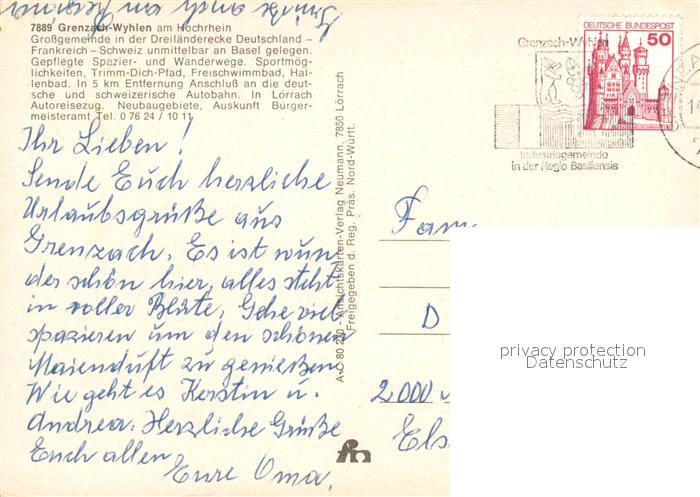 7889 Grenzach-Wyhlen am Hochrhein
Großgemeinde in der Dreiländerecke Deutschland –
Frankreich – Schweiz unmittelbar an Basel gelegen.
Gepflegte Spazier- und Wanderwege. Sportmög-
lichkeiten, Trimm-Dich-Pfad, Freischwimmbad, Hal-
lenbad. In 5 km Entfernung Anschluß an die deut-
sche und schweizerische Autobahn. In Lörrach
Autoreisezug. Neubaugebiete, Auskunft Bürger-
meisteramt Tel. 0 76 24 / 10 11
Ihr Lieben!
Sende Euch herzliche
Urlaubsgrüße aus
Grenzach. Es ist wun
der schön hier, alles steht
in voller Blüte, Gehe viel
spazieren um den schönen
Maienduft zu genießen
Wie geht es Kerstin u.
Andrea. Herzliche Grüße
Euch allen
Eure Oma.
A-O 80 2 0 - Ansichtskarten-Verlag Neumann, 7850 Lörrach
Freigegeben d. Reg. Präs. Nord-Württ.
DEUTSCHE BUNDESPOST
50
Grenzach-Wyhlen
Industriegemeinde
in der Regio Basiliensis
Fam
D
2000
Els
privacy protection
Datenschutz